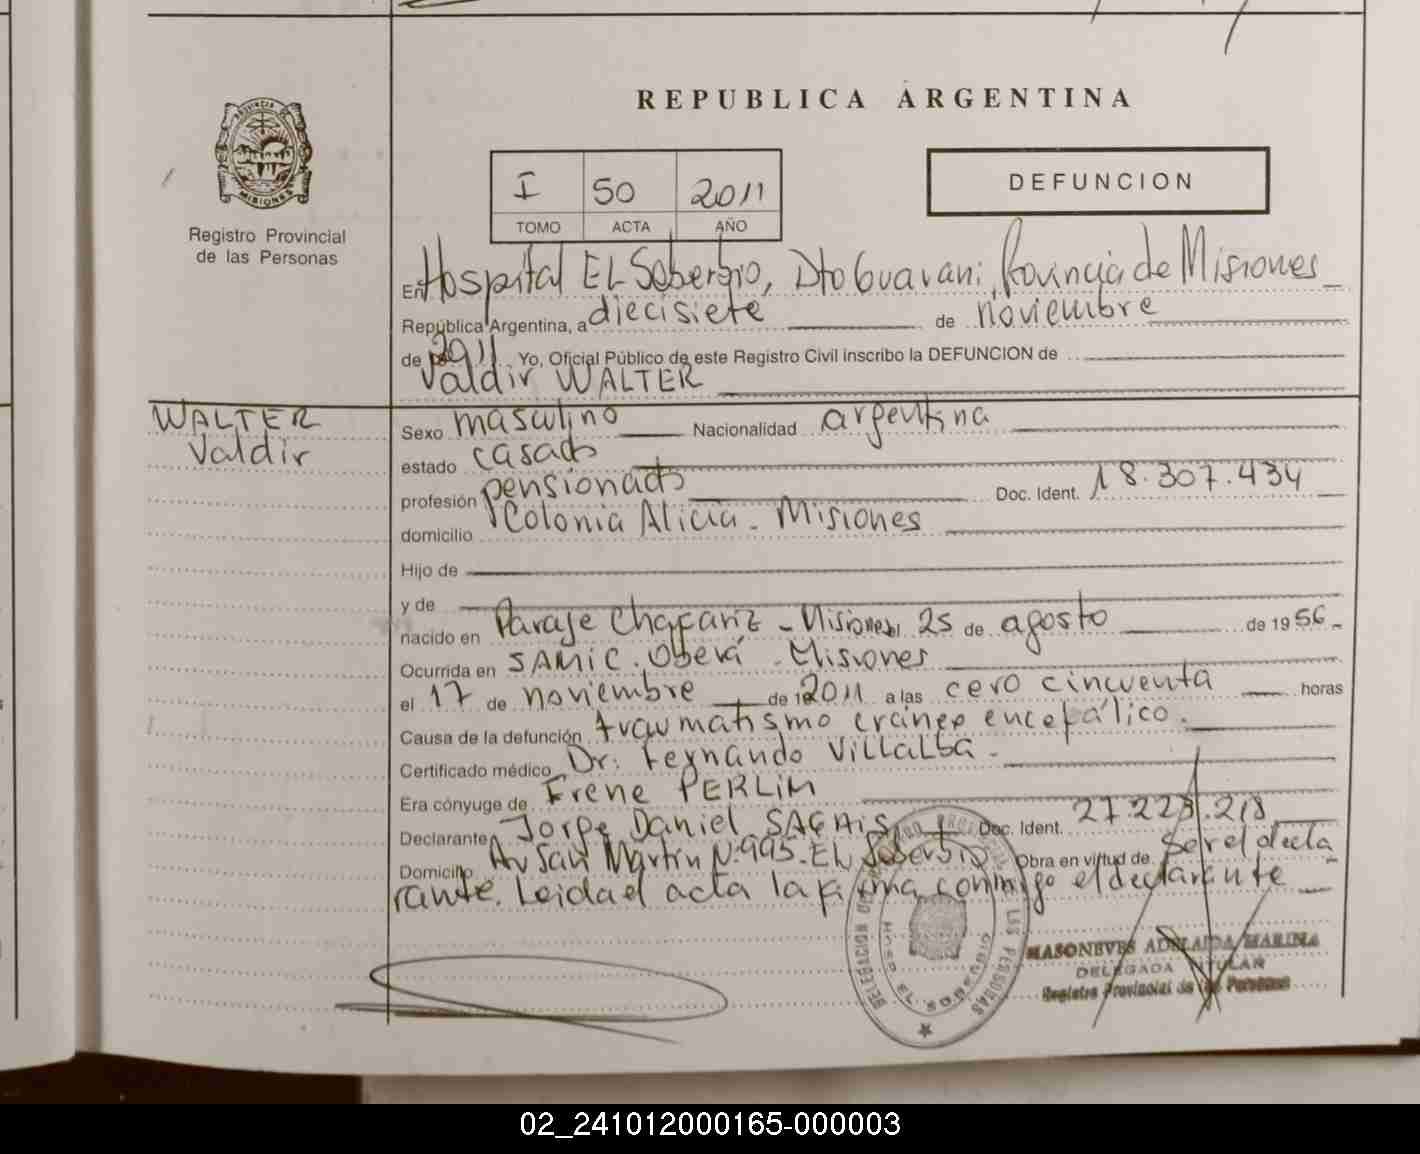 REPUBLICA ARGENTINA
PROVINCIA DE
MISIONES
Registro Provincial
de las Personas
I 50 2011
TOMO ACTA AÑO
DEFUNCION
En Hospital EL Soberbio, Dto Guarani, Provincia de Misiones
República Argentina, a diecisiete de noviembre
de 2011 Yo, Oficial Público de este Registro Civil inscribo la DEFUNCION de
Valdir WALTER
WALTER
Valdir
Sexo masculino Nacionalidad argentina
estado casado
profesión pensionado Doc. Ident. 18.307.434
domicilio Colonia Alicia - Misiones
Hijo de
y de
nacido en Paraje Chafariz - Misiones, 25 de agosto de 1956
Ocurrida en SAMIC. Oberá - Misiones
el 17 de noviembre de 2011 a las cero cincuenta horas
Causa de la defunción traumatismo cráneo encefálico.
Certificado médico Dr. Fernando Villalba -
Era cónyuge de Irene PERLIN
Declarante Jorge Daniel Doc. Ident. 27.223.218
Domicilio Av San Martin N. 995. EL Soberbio Obra en virtud de ser el decla
rante. Leida el acta la firma conmigo el declarante
MASONEVES ADELAIDA MARINA
DELEGADA TITULAR
Registro Provincial de las Personas
02_241012000165-000003